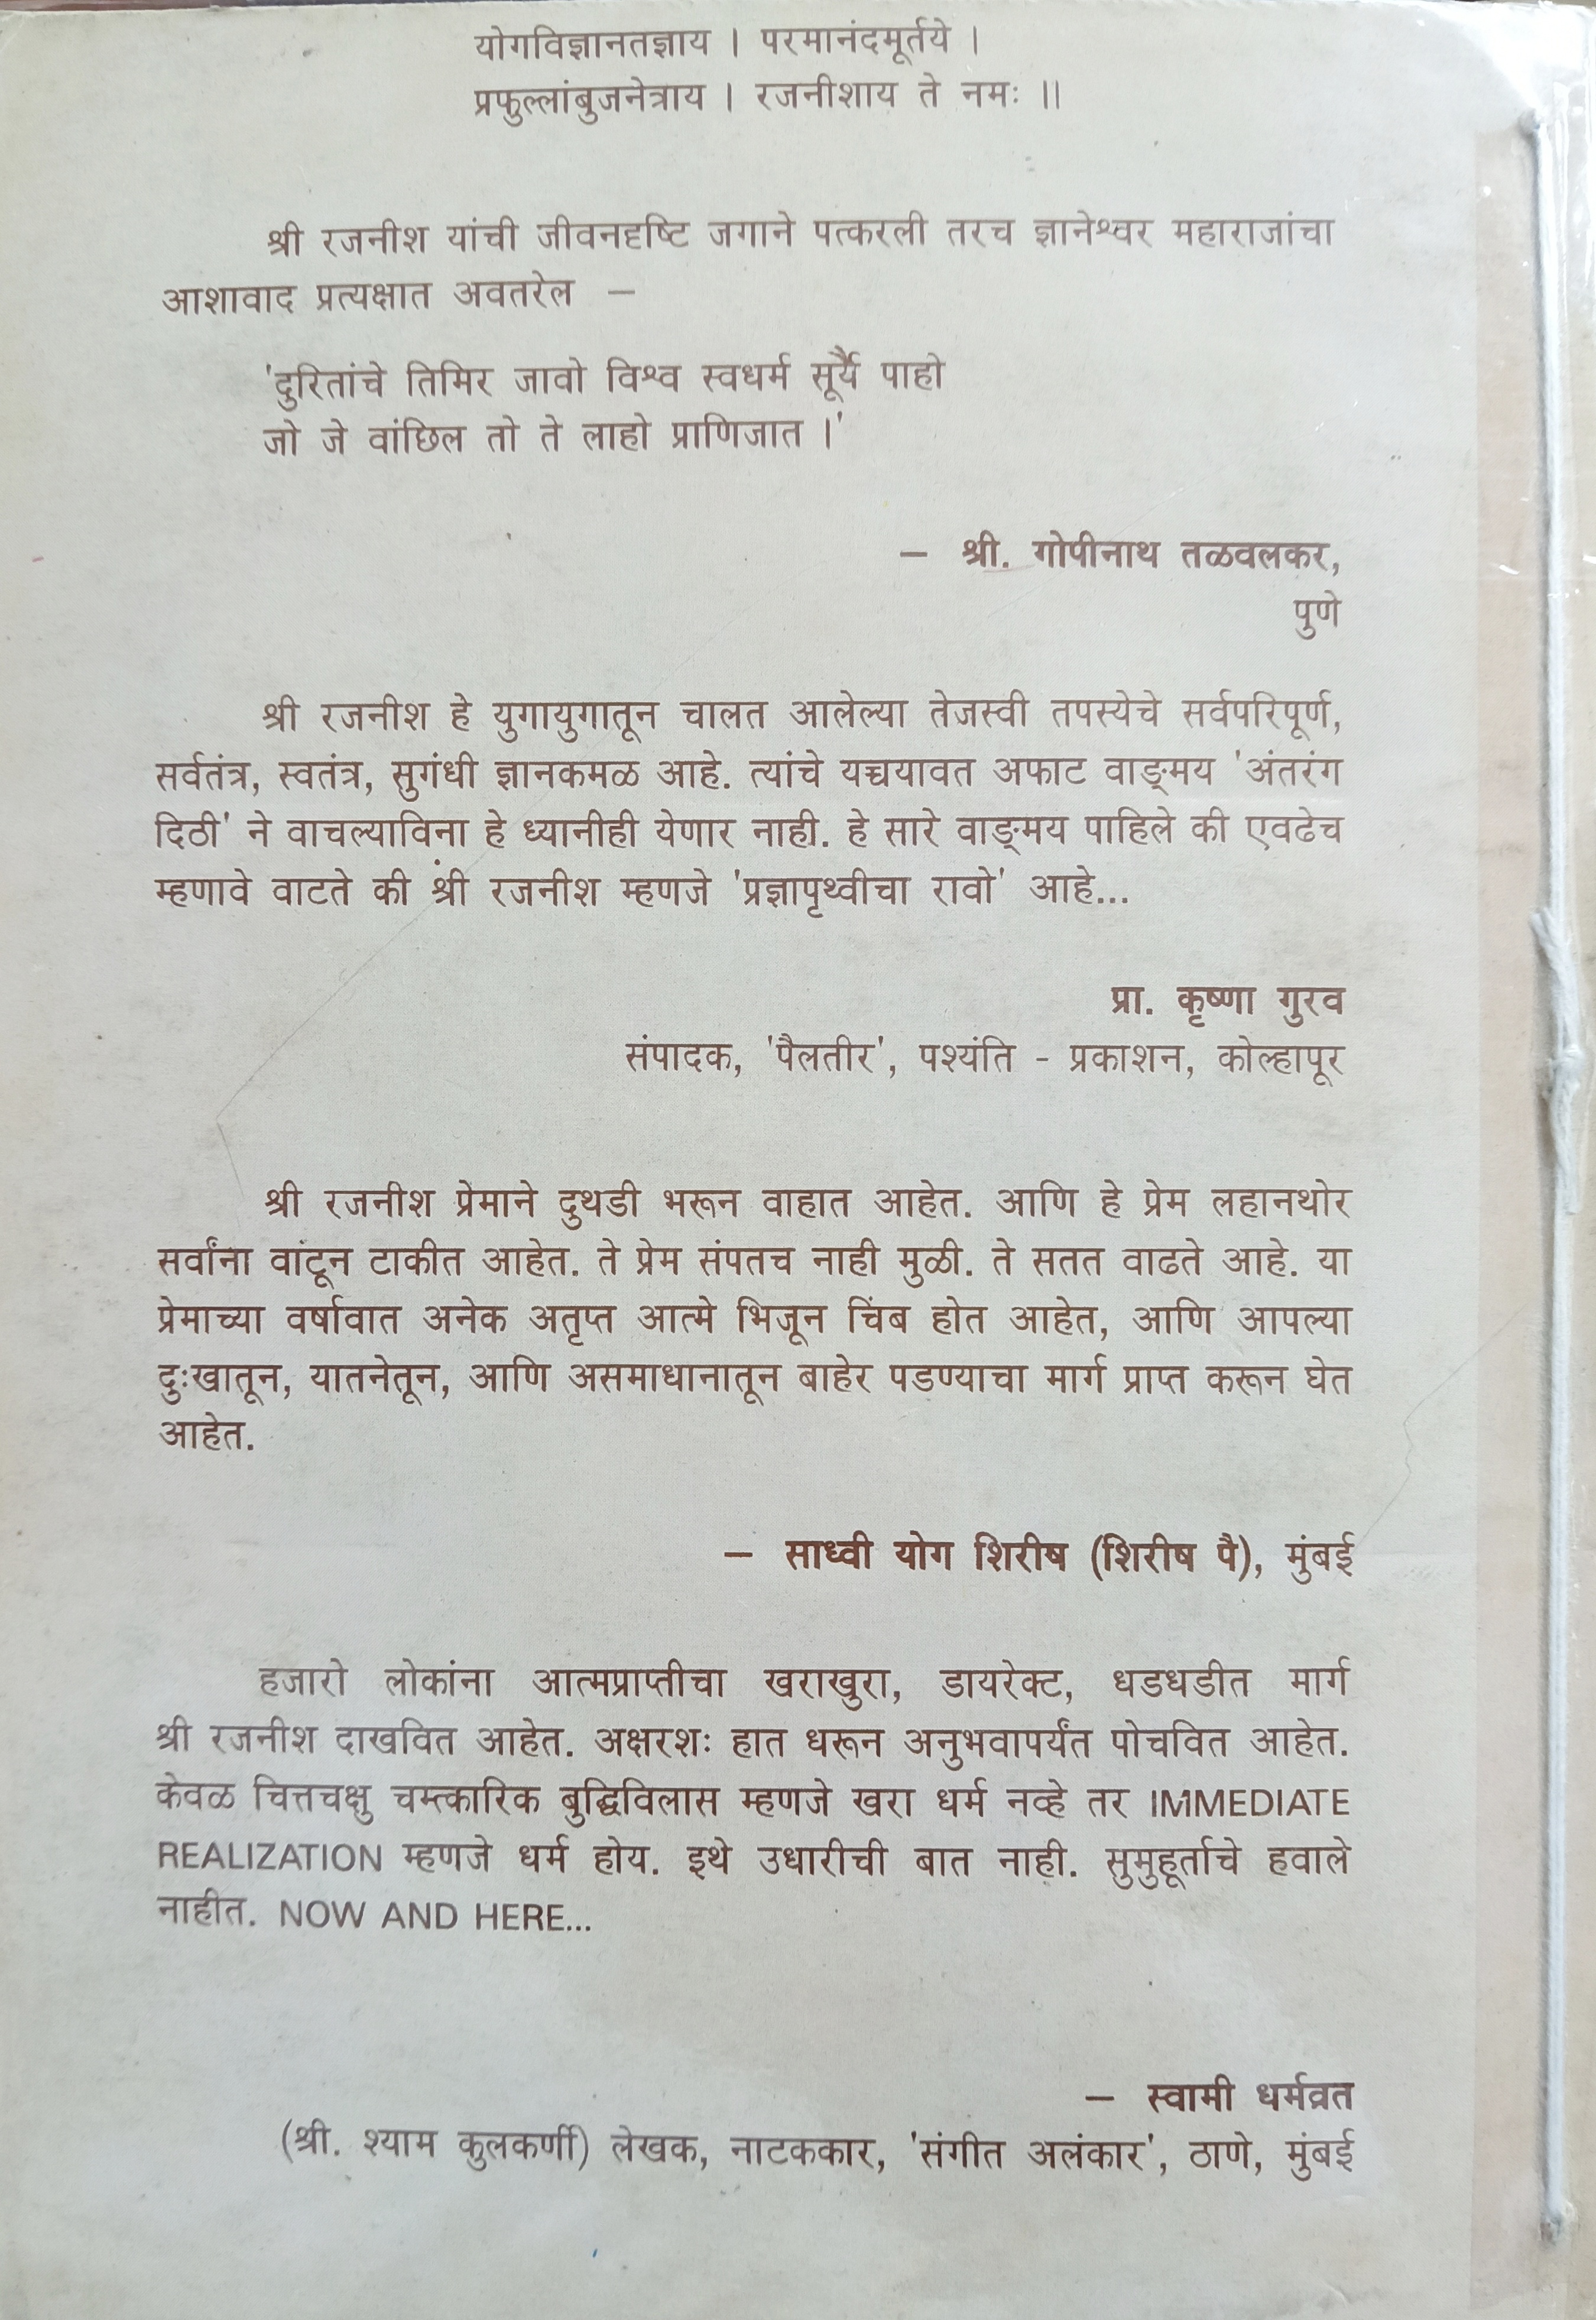 योगविज्ञानतज्ञाय । परमानंदमूर्तये ।
प्रफुल्लांबुजनेत्राय । रजनीशाय ते नमः ॥
श्री रजनीश यांची जीवनदृष्टि जगाने पत्करली तरच ज्ञानेश्वर महाराजांचा
आशावाद प्रत्यक्षात अवतरेल –
'दुरितांचे तिमिर जावो विश्व स्वधर्म सूर्यै पाहो
जो जे वांछिल तो ते लाहो प्राणिजात ।'
– श्री. गोपीनाथ तळवलकर,
पुणे
श्री रजनीश हे युगायुगातून चालत आलेल्या तेजस्वी तपस्येचे सर्वपरिपूर्ण,
सर्वतंत्र, स्वतंत्र, सुगंधी ज्ञानकमळ आहे. त्यांचे यच्चयावत अफाट वाङ्‌मय 'अंतरंग
दिठी' ने वाचल्याविना हे ध्यानीही येणार नाही. हे सारे वाङ्‌मय पाहिले की एवढेच
म्हणावे वाटते की श्री रजनीश म्हणजे 'प्रज्ञापृथ्वीचा रावो' आहे...
प्रा. कृष्णा गुरव
संपादक, 'पैलतीर', पश्यंति - प्रकाशन, कोल्हापूर
श्री रजनीश प्रेमाने दुथडी भरून वाहात आहेत. आणि हे प्रेम लहानथोर
सर्वांना वाटून टाकीत आहेत. ते प्रेम संपतच नाही मुळी. ते सतत वाढते आहे. या
प्रेमाच्या वर्षावात अनेक अतृप्त आत्मे भिजून चिंब होत आहेत, आणि आपल्या
दुःखातून, यातनेतून, आणि असमाधानातून बाहेर पडण्याचा मार्ग प्राप्त करून घेत
आहेत.
– साध्वी योग शिरीष (शिरीष पै), मुंबई
हजारो लोकांना आत्मप्राप्तीचा खराखुरा, डायरेक्ट, धडधडीत मार्ग
श्री रजनीश दाखवित आहेत. अक्षरशः हात धरून अनुभवापर्यंत पोचवित आहेत.
केवळ चित्तचक्षु चमत्कारिक बुद्धिविलास म्हणजे खरा धर्म नव्हे तर IMMEDIATE
REALIZATION म्हणजे धर्म होय. इथे उधारीची बात नाही. सुमुहूर्ताचे हवाले
नाहीत. NOW AND HERE...
– स्वामी धर्मव्रत
(श्री. श्याम कुलकर्णी) लेखक, नाटककार, 'संगीत अलंकार', ठाणे, मुंबई